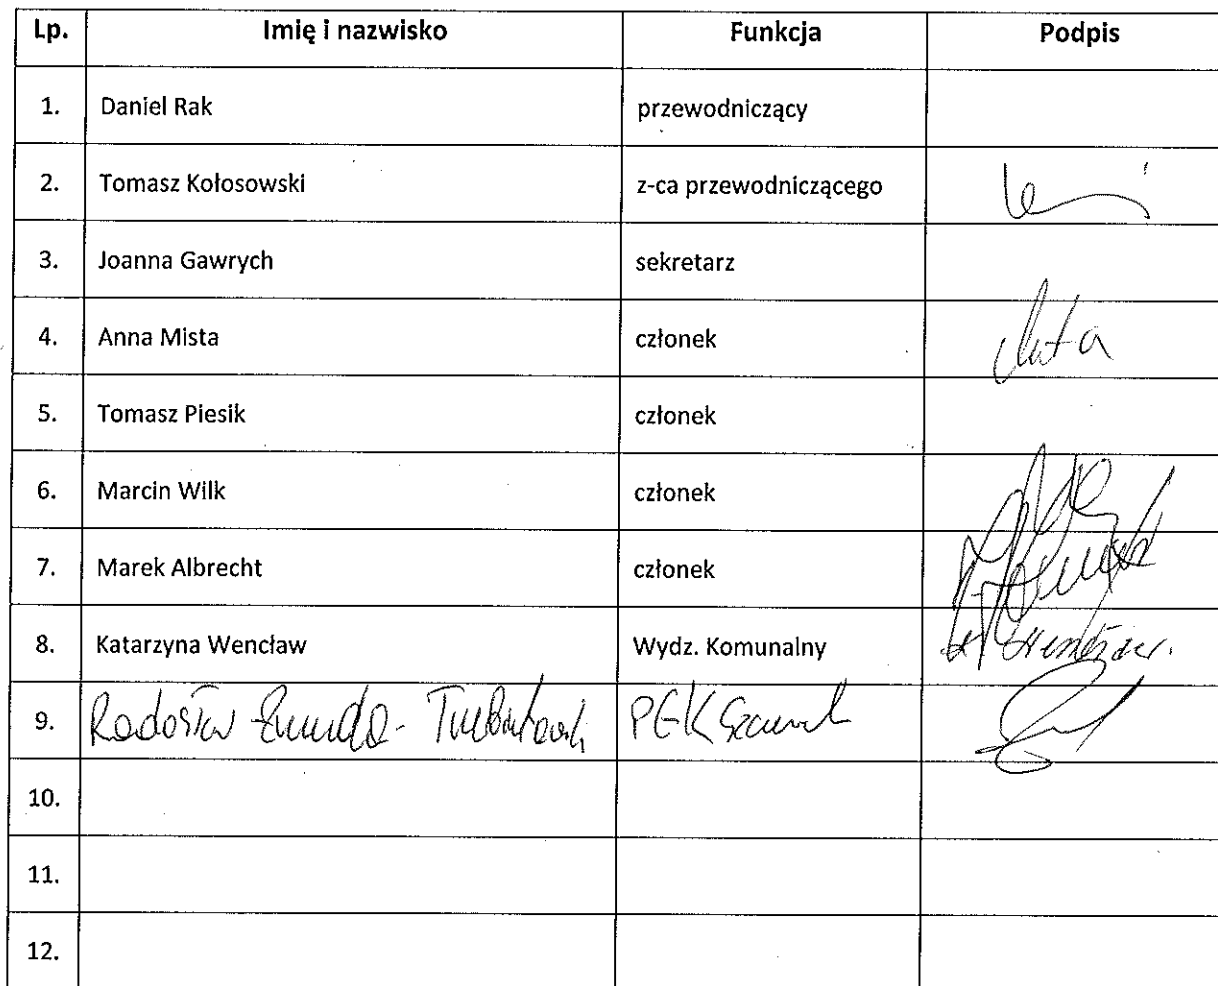 Lp. Imię i nazwisko Funkcja Podpis
1. Daniel Rak przewodniczący
2. Tomasz Kołosowski z-ca przewodniczącego
3. Joanna Gawrych sekretarz
4. Anna Mista członek
5. Tomasz Piesik członek
6. Marcin Wilk członek
7. Marek Albrecht członek
8. Katarzyna Wencław Wydz. Komunalny
9. Radosław
10.
11.
12.